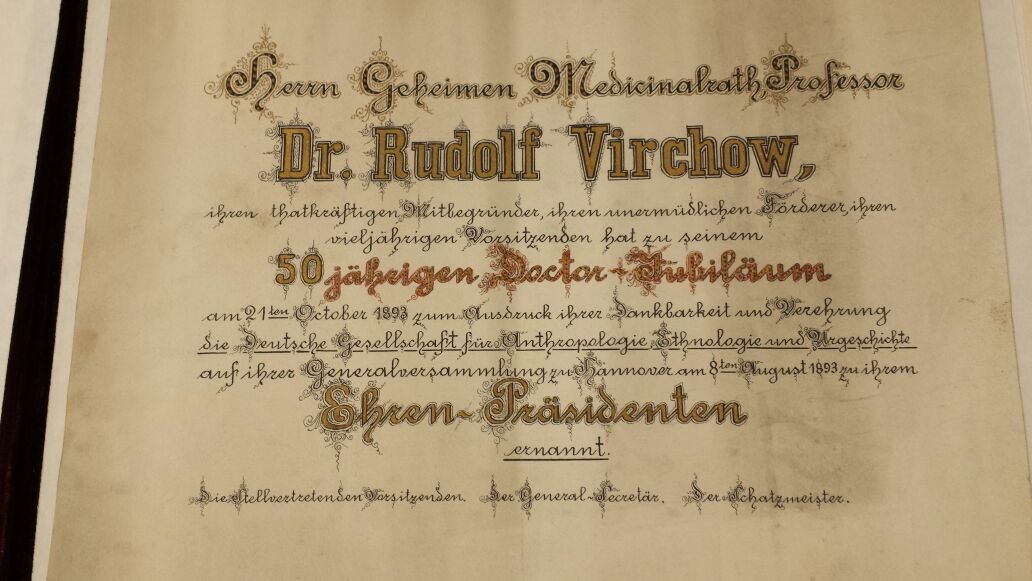 Herrn Geheimen Medicinalrath, Professor
Dr. Rudolf Virchow,
ihren thatkräftigen Mitbegründer, ihren unermüdlichen Förderer, ihren
vieljährigen Vorsitzenden hat zu seinem
50 jährigen Doctor-Jubiläum
am 21ten October 1893 zum Ausdruck ihrer Dankbarkeit und Verehrung
die Deutsche Gesellschaft für Anthropologie Ethnologie und Urgeschichte
auf ihrer Generalversammlung zu Hannover am 8ten August 1893 zu ihrem
Ehren-Präsidenten
ernannt.
Die Stellvertretenden Vorsitzenden. Der General-Secretär. Der Schatzmeister.